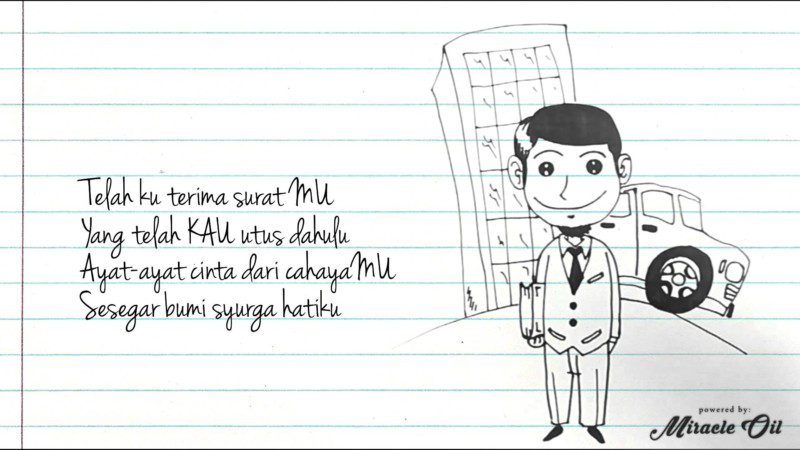 Telah ku terima surat MU
Yang telah KAU utus dahulu
Ayat-ayat cinta dari cahaya MU
Sesegar bumi syurga hatiku
powered by:
Miracle Oil